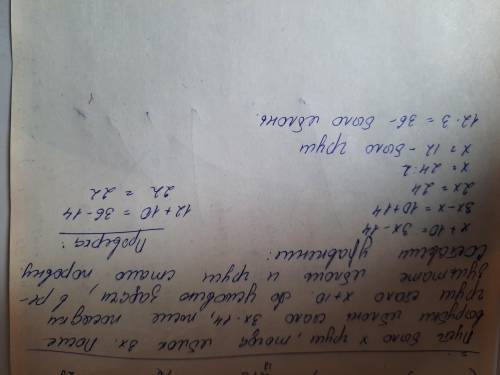 Пусть было x груш, тогда яблок 3x. После
вырубки яблонь стало 3x-14, после посадки
груш стало x+10. По условию задачи, в ре-
зультате яблонь и груш стало поровну
Составим уравнение:
x+10 = 3x-14
3x-x = 10+14
2x = 24
x = 24:2
x = 12 - было груш
12·3 = 36 - было яблонь.
Проверка:
12+10 = 36-14
22 = 22